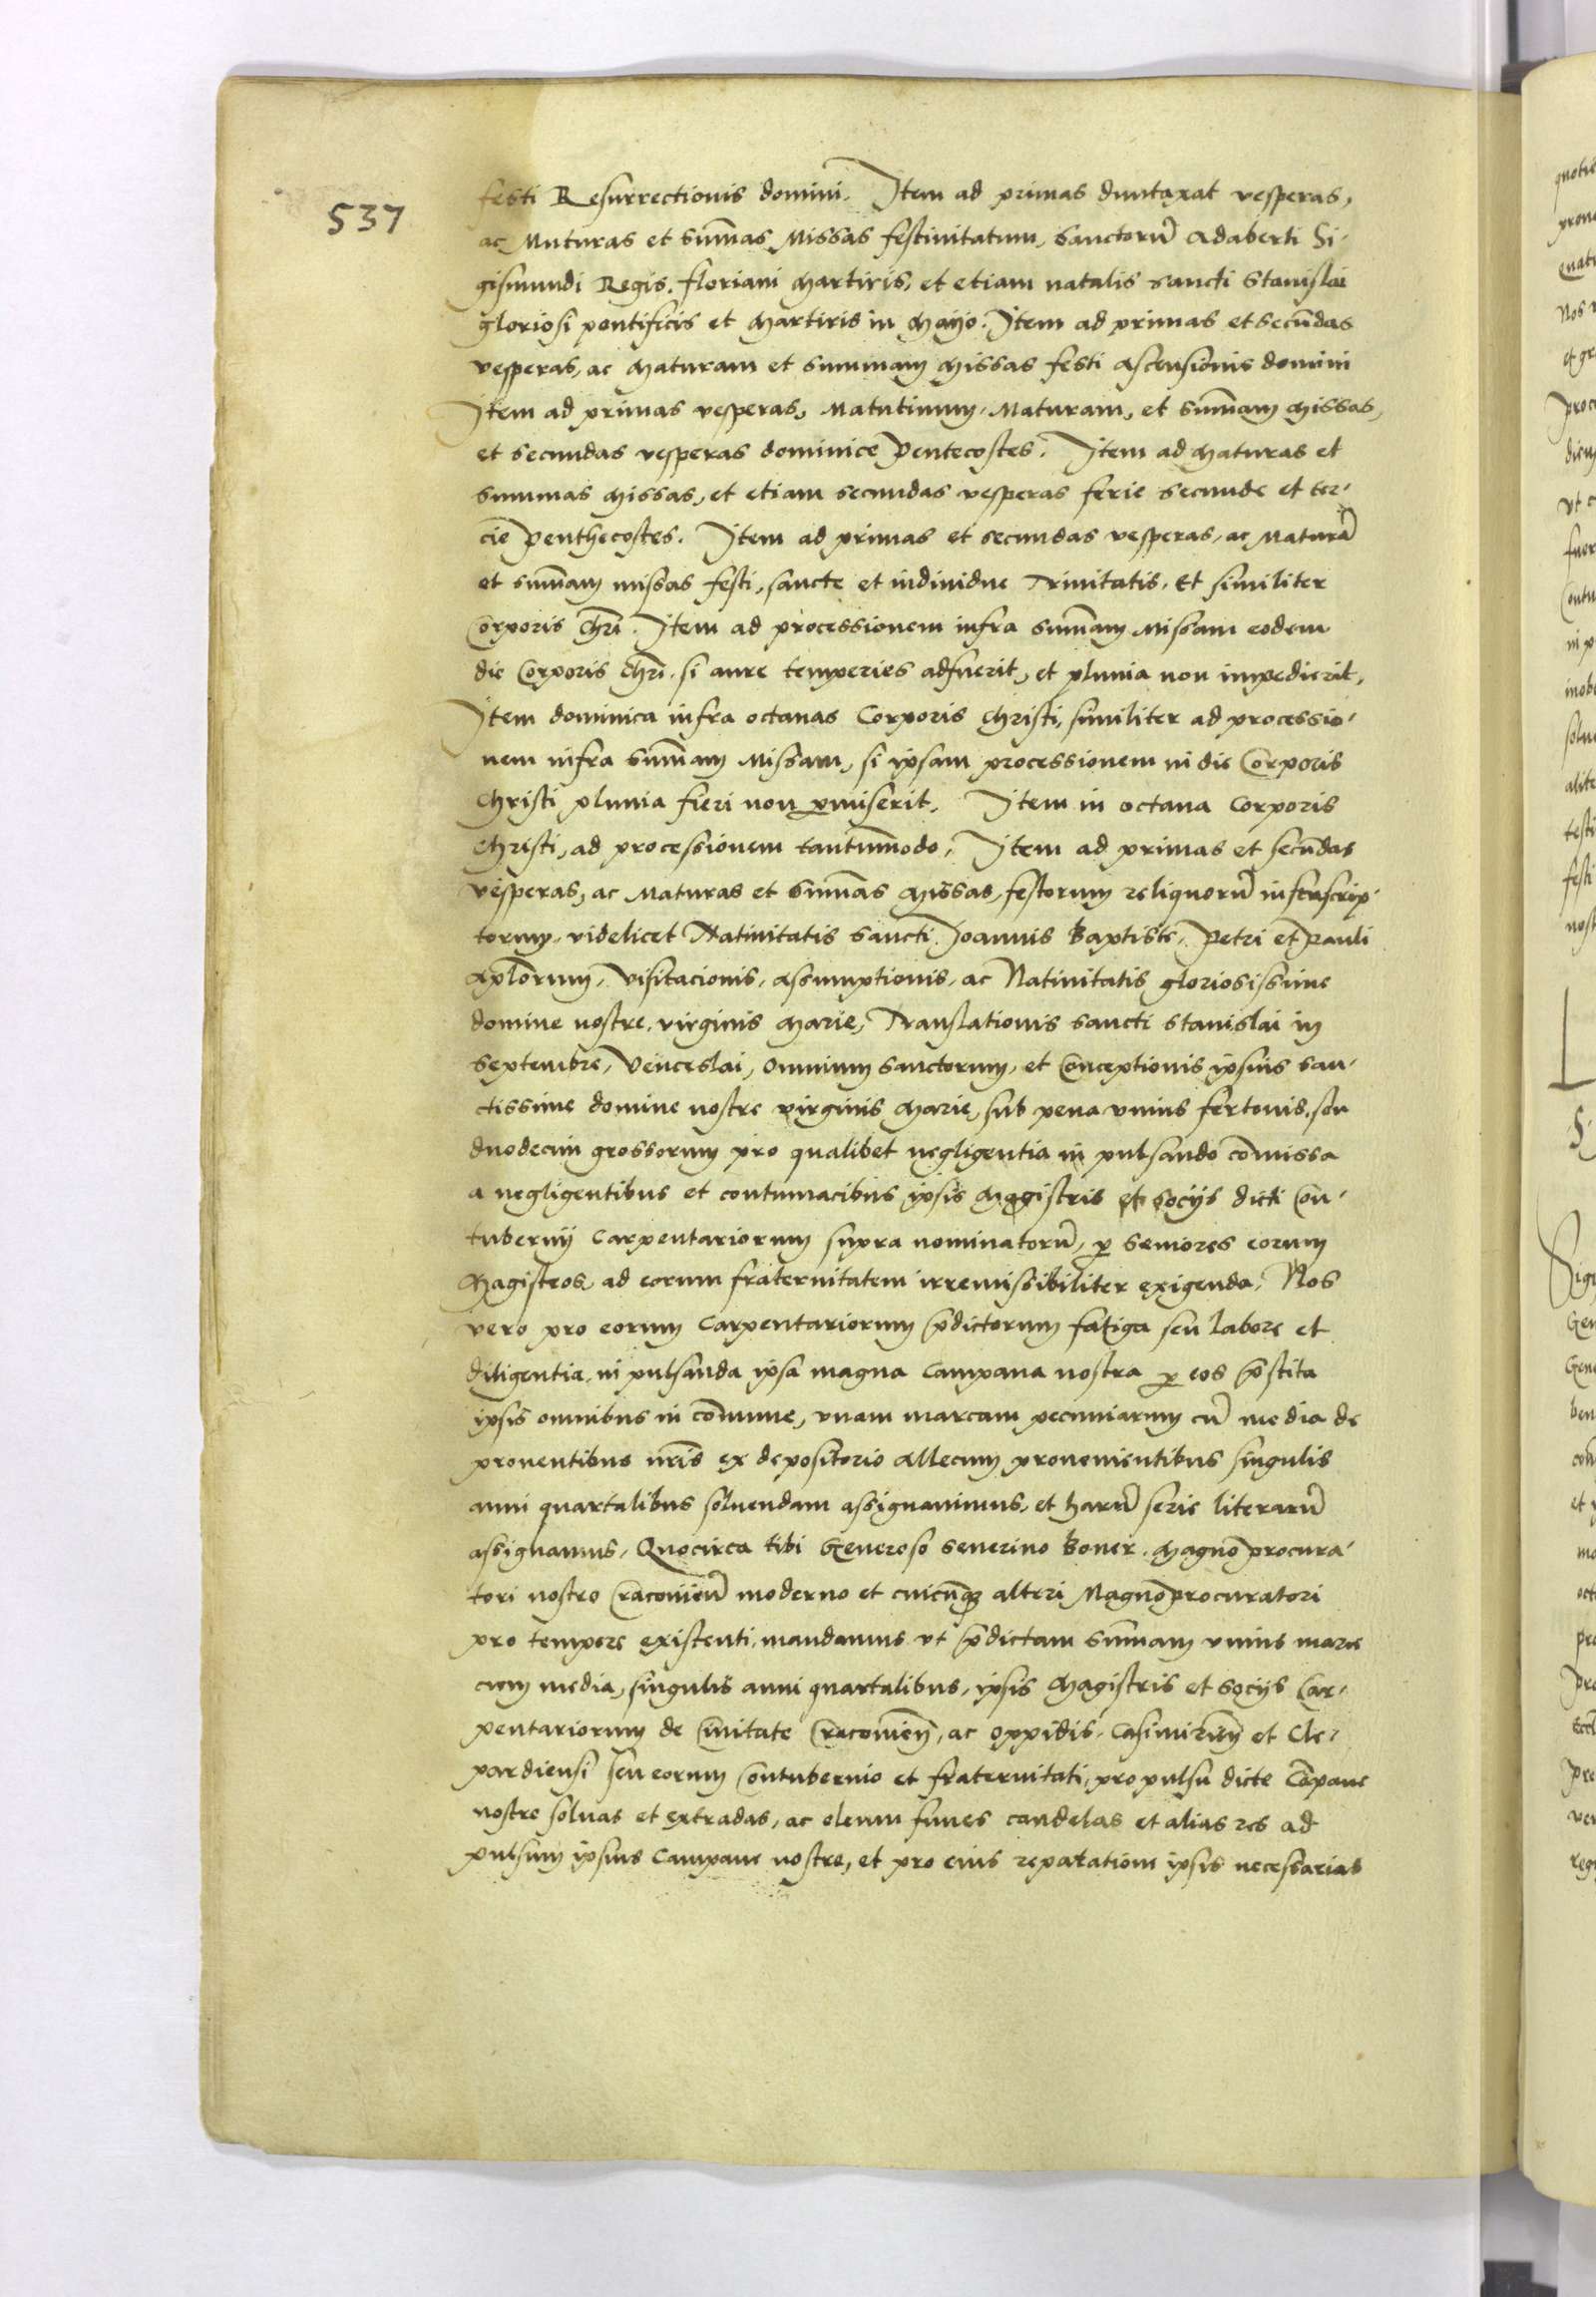 537
festi Resurrectionis domini. Item ad primas duntaxat vesperas,
ac Muturas et sum̄as Missas festiuitatum, sanctorū Adaberti Si-
gismundi Regis. floriani Martiris, et etiam natalis sancti Stanislai
gloriosi pontificis et Martiris in Mayo. Item ad primas et secūdas
vesperas, ac Maturam et summam Missas festi Ascensionis domini
Item ad primas vesperas, Matutinum, Maturam, et sum̄am Missas,
et secundas vesperas dominice Pentecostes. Item ad Maturas et
summas Missas, et etiam secundas vesperas ferie secunde et ter-
cie Penthecostes. Item ad primas et secundas vesperas, ac Maturā
et sum̄am missas festi, sancte et indiuidue Trinitatis. Et similiter
Corporis Chrī. Item ad processionem infra sum̄am Missam eodem
die Corporis Chrī. si aure temperies adfuerit, et pluuia non impedierit,
Item dominica infra octauas Corporis Christi, similiter ad processio-
nem infra sum̄am Missam, si ipsam processionem in die Corporis
Christi pluuia fieri non ꝑmiserit. Item in octaua Corporis
Christi, ad processionem tantum̄odo. Item ad primas et secūdas
vesperas, ac Maturas et sum̄as Missas, festorum reliquorū infrascrip-
torum, videlicet Natiuitatis sancti Joannis Baptiste, Petri et Pauli
Aplorum, Visitacionis, Assumptionis, ac Natiuitatis gloriosissime
domine nostre, virginis Marie, Translationis sancti Stanislai in
Septembre, Venceslai, Omnium Sanctorum, et Conceptionis ipsius san-
ctissime domine nostre virginis Marie, sub pena vnius fertonis, seu
duodecim grossorum pro qualibet negligentia in pulsando com̄issa
a negligentibus et contumacibus ipsis Magistris et socijs dicti Con-
tubernij Carpentariorum supra nominatorū, ꝑ seniores eorum
Magistros, ad eorum fraternitatem irremissibiliter exigenda. Nos
vero pro eorum Carpentariorum p̄dictorum fatiga seu labore et
diligentia, in pulsanda ipsa magna Campana nostra ꝑ eos p̄stita
ipsis omnibus in com̄une, vnam marcam pecuniarum cū media de
prouentibus nr̄is ex depositorio Allecum prouenientibus singulis
anni quartalibus soluendam assignauimus, et harū serie literarū
assignamus. Quocirca tibi Generoso Seuerino Boner. Magnoprocura-
tori nostro Cracouieñ moderno et cuicūq̨ alteri Magnoprocuratori
pro tempore existenti, mandamus vt p̄dictam sum̄am vnius marce
cum media, singulis anni quartalibus, ipsis Magistris et socijs Car-
pentariorum de Ciuitate Cracouieñ, ac oppidis, Casimirieñ et Cle-
pardiensi seu eorum Contubernio et fraternitati, pro pulsu dicte Cāpane
nostre soluas et extradas, ac oleum funes candelas et alias res ad
pulsum ipsius Campane nostre, et pro eius reparatione ipsis necessarias